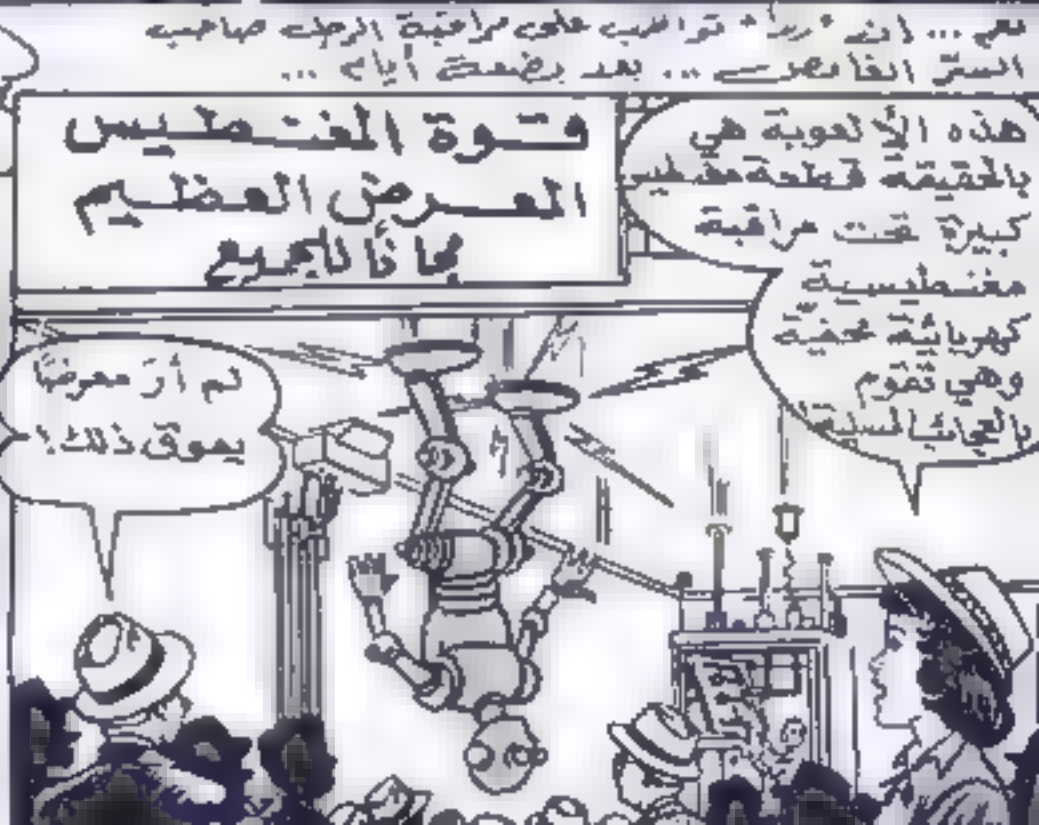 نعم ... ان "ريا" تواظب على مراقبة الرجل صاحب
السرّ الغامض ... بعد بضعة أيام ...
قوة المغنطيس
العرض العظيم
مجاناً للجميع
هذه الألعوبة هي
بالحقيقة قطعة مغنطيس
كبيرة تحت مراقبة
مغنطيسية
كهربائية مخفية
وهي تقوم
بالعجائب المسلية!
لم أرَ معرضاً
يفوق ذلك!